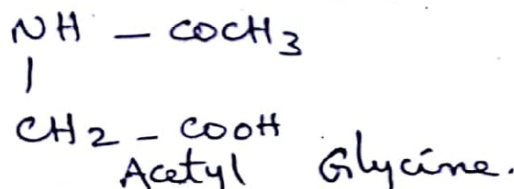 NH - COCH3
|
CH2 - COOH
Acetyl Glycine.